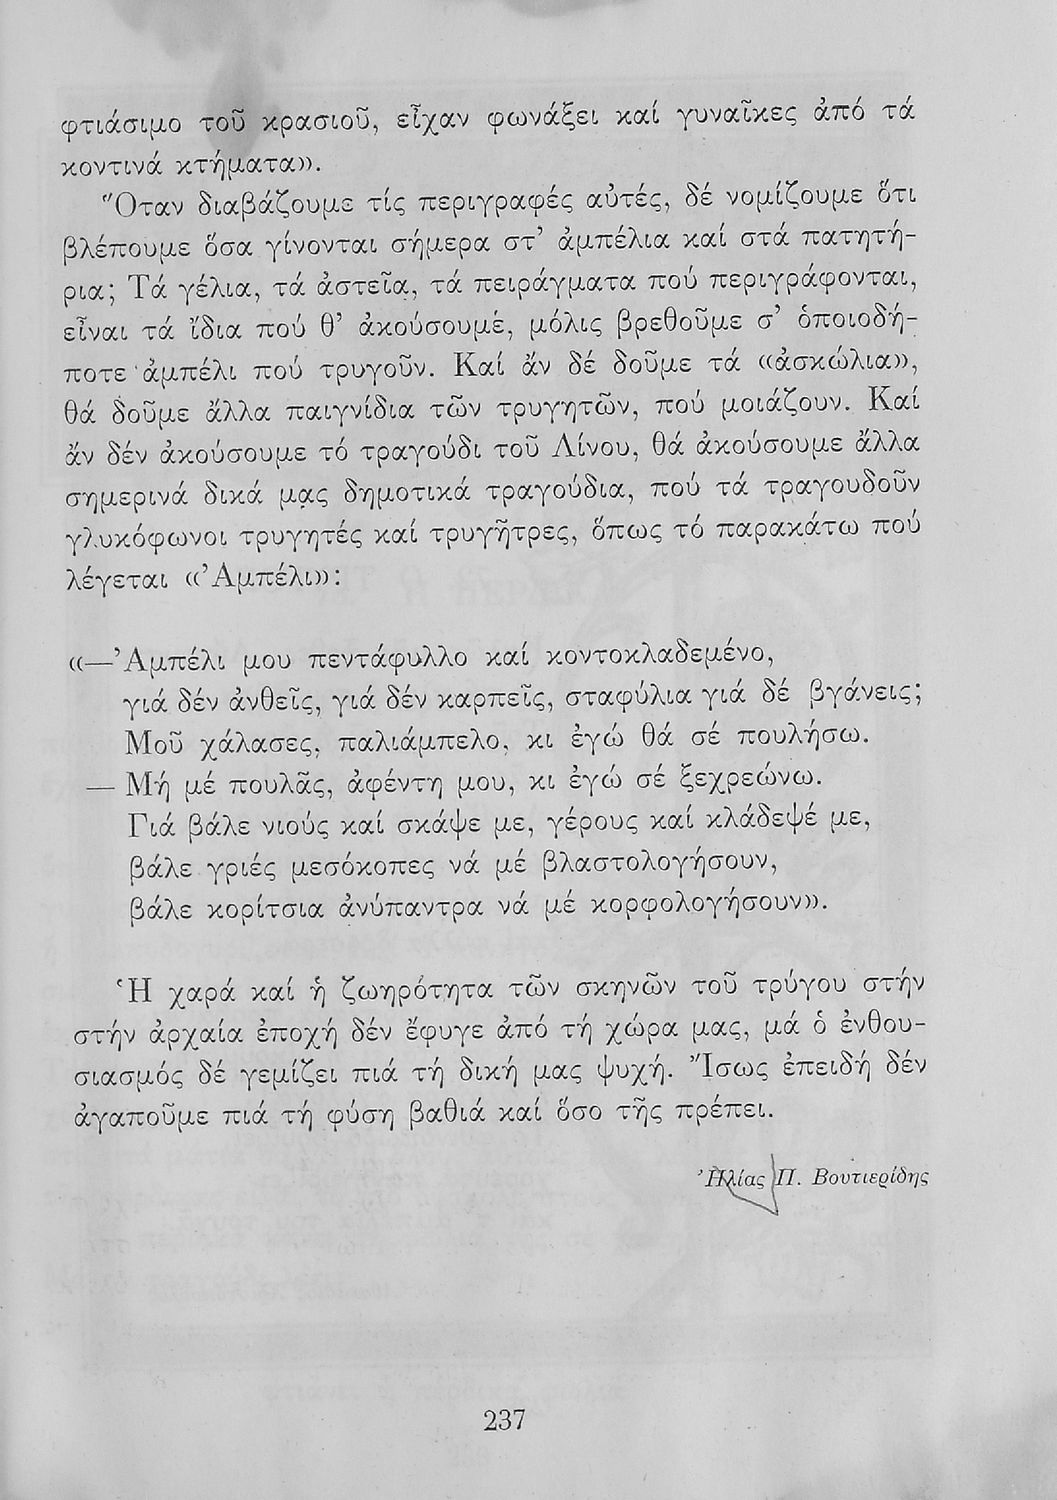 φτιάσιμο τοῦ κρασιοῦ, εἶχαν φωνάξει καί γυναῖκες ἀπό τά
κοντινά κτήματα».
Ὅταν διαβάζουμε τίς περιγραφές αὐτές, δέ νομίζουμε ὅτι
βλέπουμε ὅσα γίνονται σήμερα στ’ ἀμπέλια καί στά πατητή-
ρια; Τά γέλια, τά ἀστεῖα, τά πειράγματα πού περιγράφονται,
εἶναι τά ἴδια πού θ’ ἀκούσουμε, μόλις βρεθοῦμε σ’ ὁποιοδή-
ποτε ἀμπέλι πού τρυγοῦν. Καί ἄν δέ δοῦμε τά «ἀσκώλια»,
θά δοῦμε ἄλλα παιγνίδια τῶν τρυγητῶν, πού μοιάζουν. Καί
ἄν δέν ἀκούσουμε τό τραγούδι τοῦ Λίνου, θά ἀκούσουμε ἄλλα
σημερινά δικά μας δημοτικά τραγούδια, πού τά τραγουδοῦν
γλυκόφωνοι τρυγητές καί τρυγῆτρες, ὅπως τό παρακάτω πού
λέγεται «Ἀμπέλι»:
«—Ἀμπέλι μου πεντάφυλλο καί κοντοκλαδεμένο,
γιά δέν ἀνθεῖς, γιά δέν καρπεῖς, σταφύλια γιά δέ βγάνεις;
Μοῦ χάλασες, παλιάμπελο, κι ἐγώ θά σέ πουλήσω.
— Μή μέ πουλᾶς, ἀφέντη μου, κι ἐγώ σέ ξεχρεώνω.
Γιά βάλε νιούς καί σκάψε με, γέρους καί κλάδεψέ με,
βάλε γριές μεσόκοπες νά μέ βλαστολογήσουν,
βάλε κορίτσια ἀνύπαντρα νά μέ κορφολογήσουν».
Ἡ χαρά καί ἡ ζωηρότητα τῶν σκηνῶν τοῦ τρύγου στήν
στήν ἀρχαία ἐποχή δέν ἔφυγε ἀπό τή χώρα μας, μά ὁ ἐνθου-
σιασμός δέ γεμίζει πιά τή δική μας ψυχή. Ἴσως ἐπειδή δέν
ἀγαποῦμε πιά τή φύση βαθιά καί ὅσο τῆς πρέπει.
Ἠλίας Π. Βουτιερίδης
237